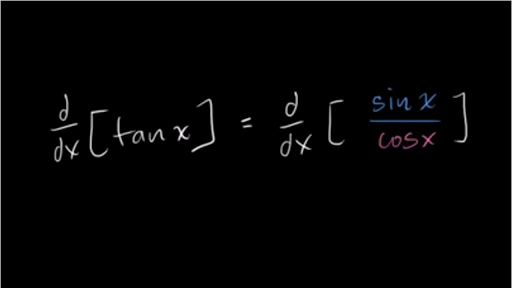 d/dx [tan x] = d/dx [ sin x / cos x ]